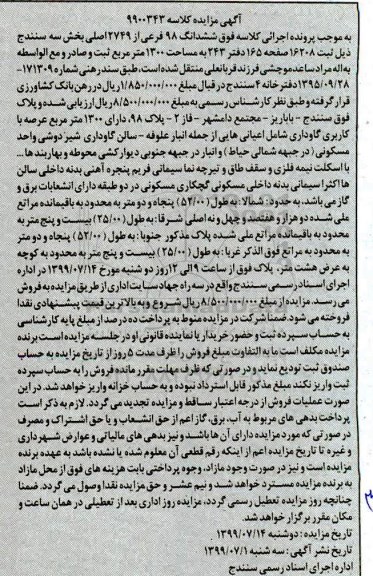 آگهی مزایده کلاسه ۹۹۰۰۳۴۳
به موجب پرونده اجرائی کلاسه فوق ششدانگ ۹۸ فرعی از ۲۷۴۹ اصلی بخش سه سنندج
ذیل ثبت ۱۶۲۰۸ صفحه ۱۶۵ دفتر ۲۴۳ به مساحت ۱۳۰۰ متر مربع ثبت و صادر و مع الواسطه
به اله مراد ساعدموچشی فرزند قربانعلی منتقل شده است، طبق سند رهنی شماره ۱۷۱۳۰۹-
۱۳۹۵/۰۹/۲۸ دفترخانه ۴ سنندج در قبال مبلغ ۱/۸۵۰/۰۰۰/۰۰۰ ریال در رهن بانک کشاورزی
قرار گرفته و طبق نظر کارشناس رسمی به مبلغ ۸/۵۰۰/۰۰۰/۰۰۰ ریال ارزیابی شده و پلاک
فوق سنندج - باباریز - مجتمع دامشهر - فاز ۲ - پلاک ۹۸، دارای ۱۳۰۰ متر مربع عرصه با
کاربری گاوداری شامل اعیانی هایی از جمله انبار علوفه - سالن گاوداری شیر دوشی واحد
مسکونی (در جبهه شمالی حیاط) و انبار در جبهه جنوبی دیوارکشی محوطه و بهاربند ها...
با اسکلت نیمه فلزی و سقف طاق و تیرچه نما سیمانی فریم پنجره آهنی بدنه داخلی سالن
ها اکثرا سیمانی بدنه داخلی مسکونی گچکاری مسکونی در دو طبقه دارای انشعابات برق و
گاز می باشد، به حدود: شمالا: به طول (۵۲/۰۰) پنجاه و دو متر به محدود به باقیمانده مراتع
ملی شده دو هزار و هفتصد و چهل و نه اصلی شرقا: به طول (۲۵/۰۰) بیست و پنج متر به
محدود به باقیمانده مراتع ملی شده پلاک مذکور جنوبا: به طول (۵۲/۰۰) پنجاه و دو متر
به محدود به مراتع فوق الذکر غربا: به طول (۲۵/۰۰) بیست و پنج متر به محدود به کوچه
به عرض هشت متر، پلاک فوق از ساعت ۹ الی ۱۲ روز دو شنبه مورخ ۱۳۹۹/۰۷/۱۴ در اداره
اجرای اسناد رسمی سنندج واقع در سه راه جهاد سایت اداری از طریق مزایده به فروش
می رسد. مزایده از مبلغ ۸/۵۰۰/۰۰۰/۰۰۰ ریال شروع و به بالاترین قیمت پیشنهادی نقدا
فروخته می شود. ضمنا شرکت در مزایده منوط به پرداخت ده درصد از مبلغ پایه کارشناسی
به حساب سپرده ثبت و حضور خریدار یا نماینده قانونی او در جلسه مزایده است. برنده
مزایده مکلف است ما به التفاوت مبلغ فروش را ظرف مدت ۵ روز از تاریخ مزایده به حساب
صندوق ثبت تودیع نماید و در صورتی که ظرف مهلت مقرر مانده فروش را به حساب سپرده
ثبت واریز نکند مبلغ مذکور قابل استرداد نبوده و به حساب خزانه واریز خواهد شد. در این
صورت عملیات فروش از درجه اعتبار ساقط و مزایده تجدید می گردد. لازم به ذکر است
پرداخت بدهی های مربوط به آب، برق، گاز اعم از حق انشعاب و یا حق اشتراک و مصرف
در صورتی که مورد مزایده دارای آن ها باشد و نیز بدهی های مالیاتی و عوارض شهرداری
و غیره تا تاریخ مزایده اعم از اینکه رقم قطعی آن معلوم شده یا نشده باشد به عهده برنده
مزایده است و نیز در صورت وجود مازاد، وجوه پرداختی بابت هزینه های فوق از محل مازاد
به برنده مزایده مسترد خواهد شد و نیم عشر و حق مزایده نقدا وصول می گردد. ضمنا
چنانچه روز مزایده تعطیل رسمی گردد، مزایده روز اداری بعد از تعطیلی در همان ساعت و
مکان مقرر برگزار خواهد شد.
تاریخ مزایده: دوشنبه ۱۳۹۹/۰۷/۱۴
تاریخ نشر آگهی: سه شنبه ۱۳۹۹/۰۷/۱
اداره اجرای اسناد رسمی سنندج